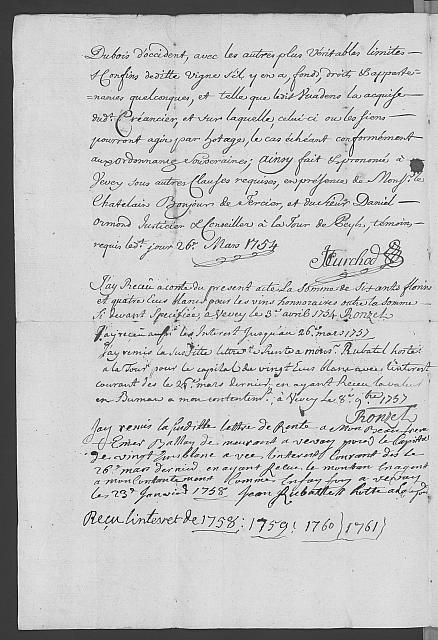 Dubois d'occident, avec les autres plus Veritables limites
& Confins de ditte vigne s'il y en a, fond, droits & apparte-
=nances quelconques, et telle que ledit Vuadens la acquise
dudt Créancier, et sur laquelle celui ci ou les siens
pourront agir par hotage, le cas échéant conformément
aux ordonnances Souveraines; ainsy fait & prononcé à
Vevey sous autres Clauses requises, en présence de Monsr le
Chatelain Bonjour de Tercier, et du sieur Daniel
Ormond Justicier & Conseiller à la Tour de Peyls, témoins
requis ledt jour 26e Mars 1754
Jay Receu a conte du present acte la Somme de Sixante florins
et quatre Luis blanc pour les vins honoraires outre la somme
Si devant Specifiée, à Vevey le 3e avril 1754 Ronzel
J'ay receu aussi les Interest Jusqu'au 26e mars 1757
Jay remis la susditte lettre de Rente a monsr Rubatel hoste
a la Tour pour le capital de vingt Luis blanc avec l'interest
courant dès le 26e mars dernier, en ayant Receu la valeur
en a mon contentemt, à Vevey le 8e 9bre 1757
Ronzel
Jay remis la suditte lettre de Rente a Mon Beau frere
de a vevay pour le Capital
de vingt Luis blanc avec linterest Courant dès le
26e mars dernier en ayant Recu le montan en argent
a mon Contantement Comme en fay foy a vevay
le 23e Janvier 1758 Jean Rubattel hotte
Reçu l'interet de 1758: 1759: 1760) 1761)